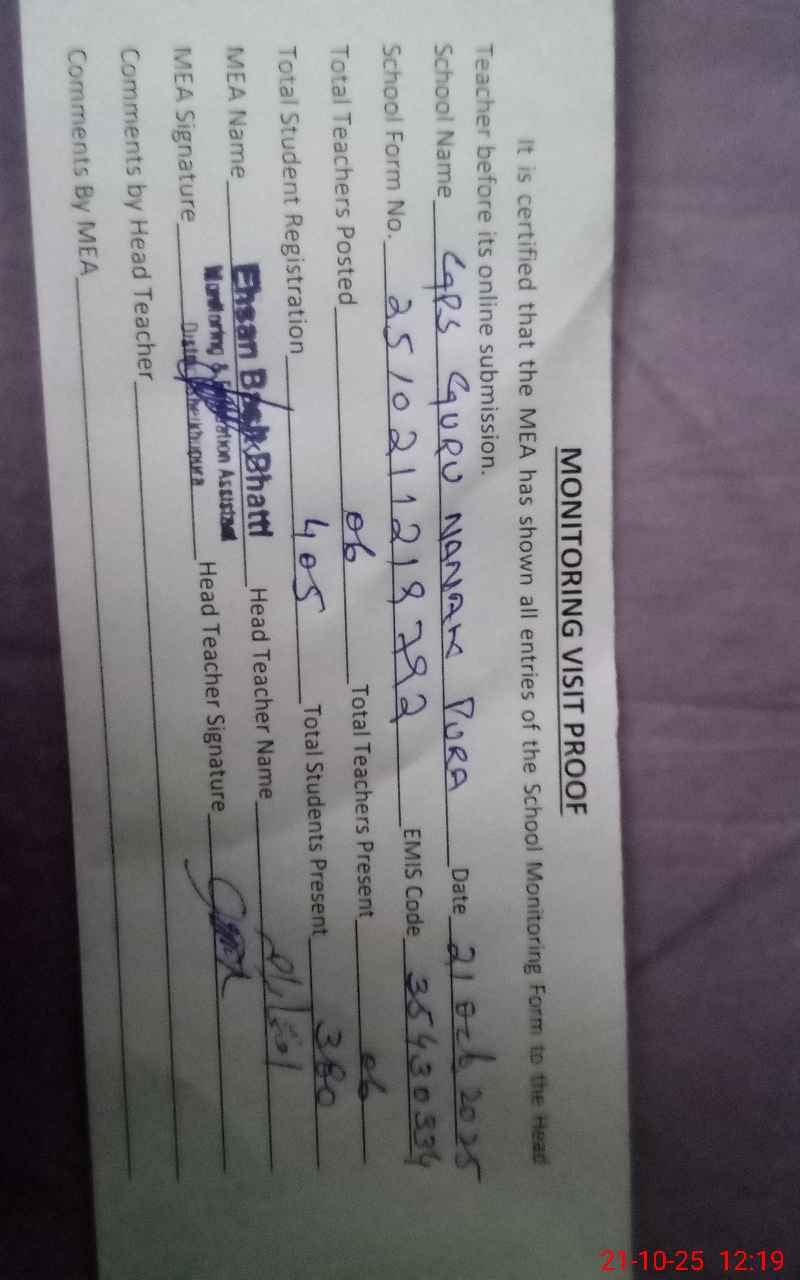 MONITORING VISIT PROOF
It is certified that the MEA has shown all entries of the School Monitoring Form to the Head
Teacher before its online submission.
School Name GGPS GURU NANAK PURA Date 21 Oct 2025
School Form No. 2510211218792 EMIS Code 35430334
Total Teachers Posted 06 Total Teachers Present 06
Total Student Registration 405 Total Students Present 380
MEA Name Ehsan Bhatti Head Teacher Name
Monitoring & Assistant
MEA Signature Sheikhupura Head Teacher Signature
Comments by Head Teacher
Comments By MEA
21-10-25 12:19